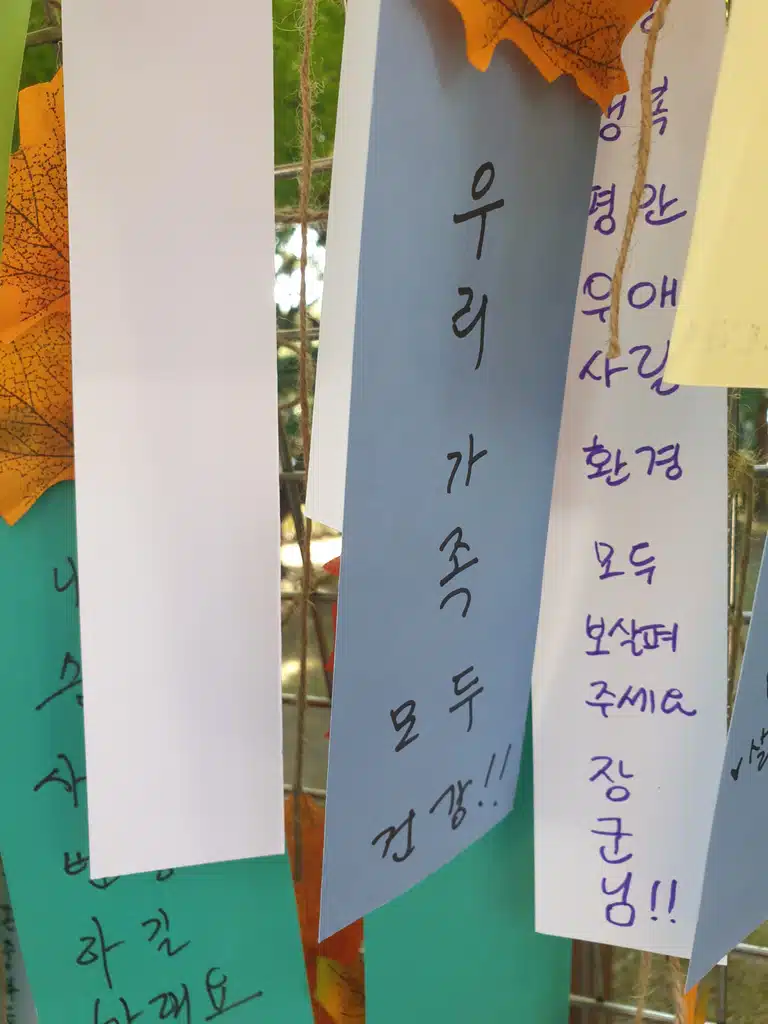 우
리
가
족
모두
건강!!
행복
평안
우애
사랑
환경
모두
보살펴
주세요
장
군
님!!
사
하길
바래요